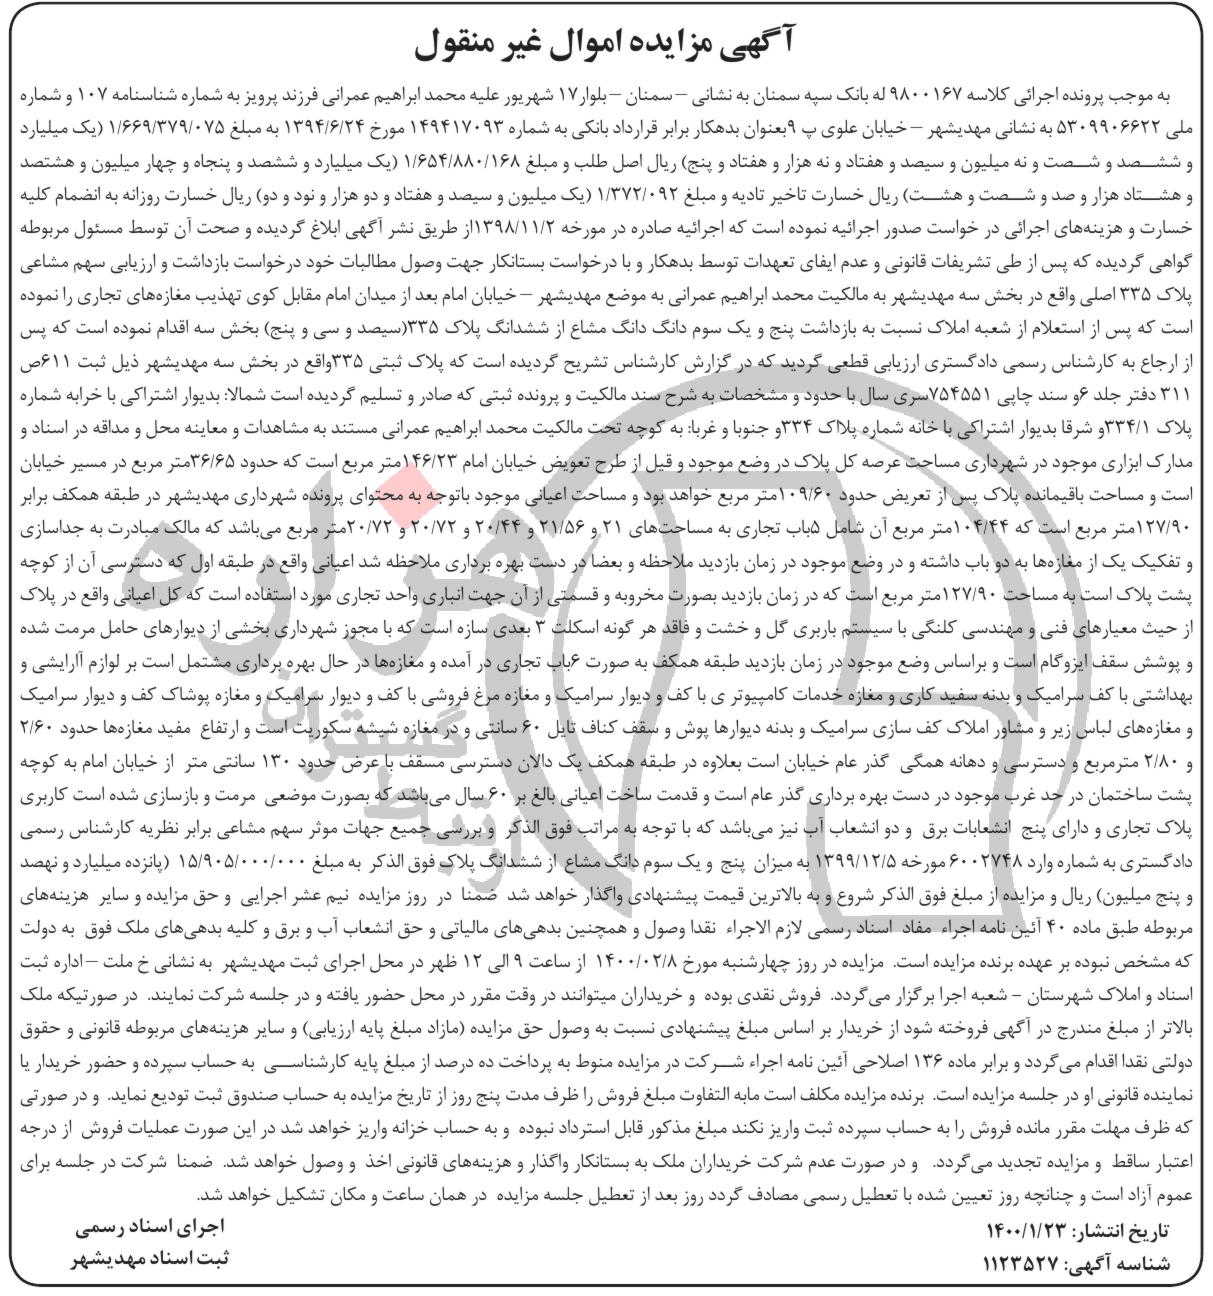 آگهی مزایده اموال غیر منقول
به موجب پرونده اجرائی کلاسه ۹۸۰۰۱۶۷ له بانک سپه سمنان به نشانی – سمنان – بلوار۱۷ شهریور علیه محمد ابراهیم عمرانی فرزند پرویز به شماره شناسنامه ۱۰۷ و شماره
ملی ۵۳۰۹۹۰۶۶۲۲ به نشانی مهدیشهر – خیابان علوی پ ۹بعنوان بدهکار برابر قرارداد بانکی به شماره ۱۴۹۴۱۷۰۹۳ مورخ ۱۳۹۴/۶/۲۴ به مبلغ ۱/۶۶۹/۳۷۹/۰۷۵ (یک میلیارد
و ششصد و شصت و نه میلیون و سیصد و هفتاد و نه هزار و هفتاد و پنج) ریال اصل طلب و مبلغ ۱/۶۵۴/۸۸۰/۱۶۸ (یک میلیارد و ششصد و پنجاه و چهار میلیون و هشتصد
و هشتاد هزار و صد و شصت و هشت) ریال خسارت تاخیر تادیه و مبلغ ۱/۳۷۲/۰۹۲ (یک میلیون و سیصد و هفتاد و دو هزار و نود و دو) ریال خسارت روزانه به انضمام کلیه
خسارت و هزینه‌های اجرائی در خواست صدور اجرائیه نموده است که اجرائیه صادره در مورخه ۱۳۹۸/۱۱/۲از طریق نشر آگهی ابلاغ گردیده و صحت آن توسط مسئول مربوطه
گواهی گردیده که پس از طی تشریفات قانونی و عدم ایفای تعهدات توسط بدهکار و با درخواست بستانکار جهت وصول مطالبات خود درخواست بازداشت و ارزیابی سهم مشاعی
پلاک ۳۳۵ اصلی واقع در بخش سه مهدیشهر به مالکیت محمد ابراهیم عمرانی به موضع مهدیشهر – خیابان امام بعد از میدان امام مقابل کوی تهذیب مغازه‌های تجاری را نموده
است که پس از استعلام از شعبه املاک نسبت به بازداشت پنج و یک سوم دانگ دانگ مشاع از ششدانگ پلاک ۳۳۵(سیصد و سی و پنج) بخش سه اقدام نموده است که پس
از ارجاع به کارشناس رسمی دادگستری ارزیابی قطعی گردید که در گزارش کارشناس تشریح گردیده است که پلاک ثبتی ۳۳۵واقع در بخش سه مهدیشهر ذیل ثبت ۶۱۱ص
۳۱۱ دفتر جلد ۶و سند چاپی ۷۵۴۵۵۱سری سال با حدود و مشخصات به شرح سند مالکیت و پرونده ثبتی که صادر و تسلیم گردیده است شمالا: بدیوار اشتراکی با خرابه شماره
پلاک ۳۳۴/۱و شرقا بدیوار اشتراکی با خانه شماره پلااک ۳۳۴و جنوبا و غربا: به کوچه تحت مالکیت محمد ابراهیم عمرانی مستند به مشاهدات و معاینه محل و مداقه در اسناد و
مدارک ابزاری موجود در شهرداری مساحت عرصه کل پلاک در وضع موجود و قبل از طرح تعویض خیابان امام ۱۴۶/۲۳متر مربع است که حدود ۳۶/۶۵متر مربع در مسیر خیابان
است و مساحت باقیمانده پلاک پس از تعریض حدود ۱۰۹/۶۰متر مربع خواهد بود و مساحت اعیانی موجود باتوجه به محتوای پرونده شهرداری مهدیشهر در طبقه همکف برابر
۱۲۷/۹۰متر مربع است که ۱۰۴/۴۴متر مربع آن شامل ۵باب تجاری به مساحت‌های ۲۱ و ۲۱/۵۶ و ۲۰/۴۴ و ۲۰/۷۲ و ۲۰/۷۲متر مربع می‌باشد که مالک مبادرت به جداسازی
و تفکیک یک از مغازه‌ها به دو باب داشته و در وضع موجود در زمان بازدید ملاحظه و بعضا در دست بهره برداری ملاحظه شد اعیانی واقع در طبقه اول که دسترسی آن از کوچه
پشت پلاک است به مساحت ۱۲۷/۹۰متر مربع است که در زمان بازدید بصورت مخروبه و قسمتی از آن جهت انباری واحد تجاری مورد استفاده است که کل اعیانی واقع در پلاک
از حیث معیارهای فنی و مهندسی کلنگی با سیستم باربری گل و خشت و فاقد هر گونه اسکلت ۳ بعدی سازه است که با مجوز شهرداری بخشی از دیوارهای حامل مرمت شده
و پوشش سقف ایزوگام است و براساس وضع موجود در زمان بازدید طبقه همکف به صورت ۶باب تجاری در آمده و مغازه‌ها در حال بهره برداری مشتمل است بر لوازم آارایشی و
بهداشتی با کف سرامیک و بدنه سفید کاری و مغازه خدمات کامپیوتر ی با کف و دیوار سرامیک و مغازه مرغ فروشی با کف و دیوار سرامیک و مغازه پوشاک کف و دیوار سرامیک
و مغازه‌های لباس زیر و مشاور املاک کف سازی سرامیک و بدنه دیوارها پوش و سقف کناف تایل ۶۰ سانتی و در مغازه شیشه سکوریت است و ارتفاع مفید مغازه‌ها حدود ۲/۶۰
و ۲/۸۰ مترمربع و دسترسی و دهانه همگی گذر عام خیابان است بعلاوه در طبقه همکف یک دالان دسترسی مسقف با عرض حدود ۱۳۰ سانتی متر از خیابان امام به کوچه
پشت ساختمان در حد غرب موجود در دست بهره برداری گذر عام است و قدمت ساخت اعیانی بالغ بر ۶۰ سال می‌باشد که بصورت موضعی مرمت و بازسازی شده است کاربری
پلاک تجاری و دارای پنج انشعابات برق و دو انشعاب آب نیز می‌باشد که با توجه به مراتب فوق الذکر و بررسی جمیع جهات موثر سهم مشاعی برابر نظریه کارشناس رسمی
دادگستری به شماره وارد ۶۰۰۲۷۴۸ مورخه ۱۳۹۹/۱۲/۵ به میزان پنج و یک سوم دانگ مشاع از ششدانگ پلاک فوق الذکر به مبلغ ۱۵/۹۰۵/۰۰۰/۰۰۰ (پانزده میلیارد و نهصد
و پنج میلیون) ریال و مزایده از مبلغ فوق الذکر شروع و به بالاترین قیمت پیشنهادی واگذار خواهد شد ضمنا در روز مزایده نیم عشر اجرایی و حق مزایده و سایر هزینه‌های
مربوطه طبق ماده ۴۰ آئین نامه اجراء مفاد اسناد رسمی لازم الاجراء نقدا وصول و همچنین بدهی‌های مالیاتی و حق انشعاب آب و برق و کلیه بدهی‌های ملک فوق به دولت
که مشخص نبوده بر عهده برنده مزایده است. مزایده در روز چهارشنبه مورخ ۱۴۰۰/۰۲/۸ از ساعت ۹ الی ۱۲ ظهر در محل اجرای ثبت مهدیشهر به نشانی خ ملت – اداره ثبت
اسناد و املاک شهرستان - شعبه اجرا برگزار می‌گردد. فروش نقدی بوده و خریداران میتوانند در وقت مقرر در محل حضور یافته و در جلسه شرکت نمایند. در صورتیکه ملک
بالاتر از مبلغ مندرج در آگهی فروخته شود از خریدار بر اساس مبلغ پیشنهادی نسبت به وصول حق مزایده (مازاد مبلغ پایه ارزیابی) و سایر هزینه‌های مربوطه قانونی و حقوق
دولتی نقدا اقدام می‌گردد و برابر ماده ۱۳۶ اصلاحی آئین نامه اجراء شرکت در مزایده منوط به پرداخت ده درصد از مبلغ پایه کارشناسی به حساب سپرده و حضور خریدار یا
نماینده قانونی او در جلسه مزایده است. برنده مزایده مکلف است مابه التفاوت مبلغ فروش را ظرف مدت پنج روز از تاریخ مزایده به حساب صندوق ثبت تودیع نماید. و در صورتی
که ظرف مهلت مقرر مانده فروش را به حساب سپرده ثبت واریز نکند مبلغ مذکور قابل استرداد نبوده و به حساب خزانه واریز خواهد شد در این صورت عملیات فروش از درجه
اعتبار ساقط و مزایده تجدید می‌گردد. و در صورت عدم شرکت خریداران ملک به بستانکار واگذار و هزینه‌های قانونی اخذ و وصول خواهد شد. ضمنا شرکت در جلسه برای
عموم آزاد است و چنانچه روز تعیین شده با تعطیل رسمی مصادف گردد روز بعد از تعطیل جلسه مزایده در همان ساعت و مکان تشکیل خواهد شد.
تاریخ انتشار: ۱۴۰۰/۱/۲۳
شناسه آگهی: ۱۱۲۳۵۲۷
اجرای اسناد رسمی
ثبت اسناد مهدیشهر
هزاره
گستران
ارتباط